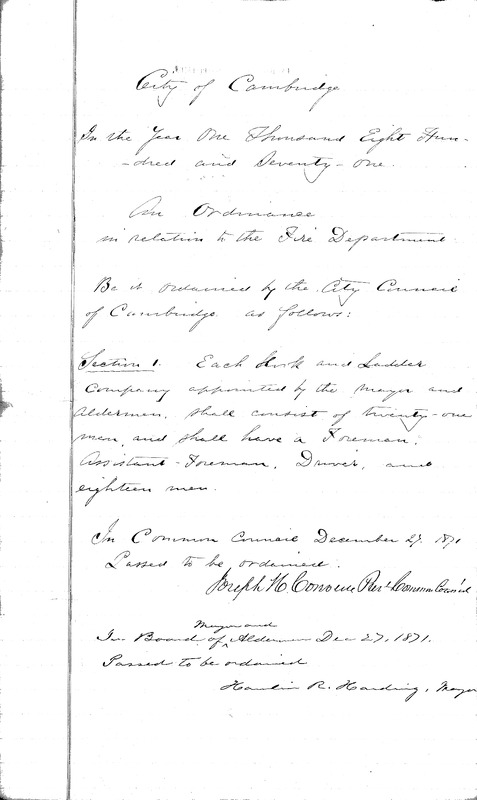 City of Cambridge
In the Year One Thousand Eight Hun-
-dred and Seventy-one.
An Ordinance
in relation to the Fire Department
Be it ordained by the City Council
of Cambridge as follows:
Section 1. Each Hook and Ladder
Company appointed by the Mayor and
Aldermen, shall consist of twenty-one
men, and shall have a Foreman,
Assistant-Foreman, Driver, and
eighteen men.
In Common Council December 27. 1871
Passed to be ordained.
Joseph H. Converse Pres't Common Council
Mayor and
In Board of ^ Aldermen Dec 27, 1871.
Passed to be ordained
Hamlin R. Harding, Mayor